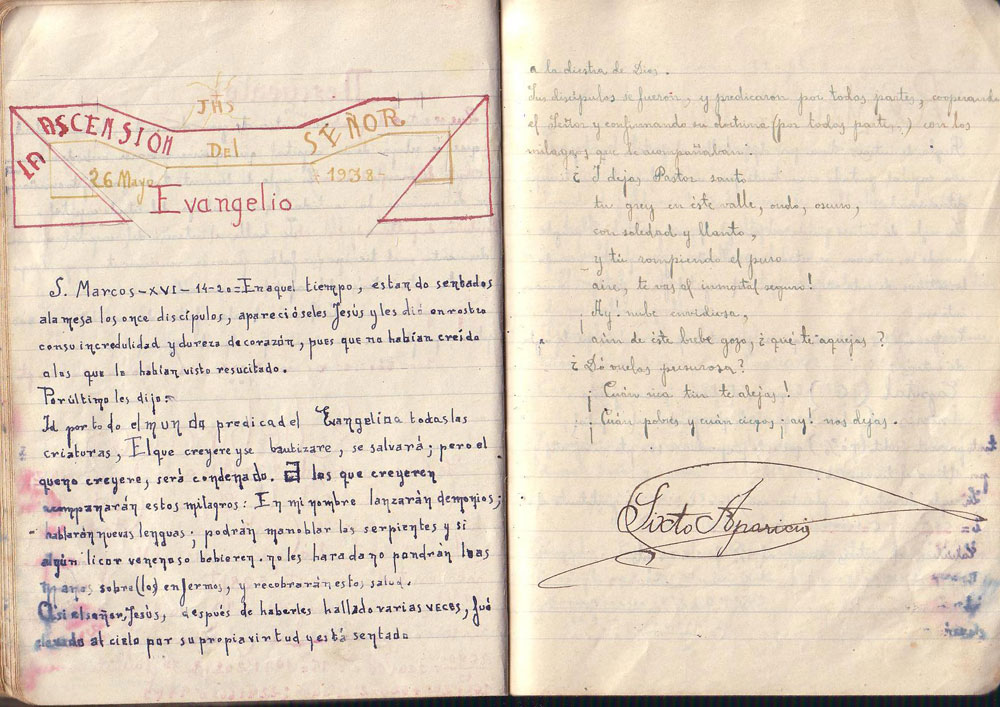 JHS
LA ASCENSIÓN DEL SEÑOR
26 Mayo 1938-
Evangelio
S. Marcos-XVI-14-20=En aquel tiempo, estando sentados
a la mesa los once discípulos, aparecióseles Jesús y les dió en rostro
con su incredulidad y dureza de corazón, pues que no habían creído
a los que le habían visto resucitado.
Por último les dijo:
Id por todo el mundo predicad el Evangelio a todas las
criaturas, El que creyere y se bautizare, se salvará; pero el
que no creyere, será condenado. A los que creyeren
acompanarán estos milagros: En mi nombre lanzarán demonios;
hablarán nuevas lenguas; podrán manoblar las serpientes y si
algún licor venenoso bebieren. no les hara dano pondrán las
manos sobre (los) enfermos, y recobrarán estos salud.
Asi el señor, Jesús, después de haberles hallado varias veces, fué
elevado al cielo por su propia virtud y está sentado
a la diestra de Dios.
Sus discípulos se fuerón, y predicaron por todas partes, cooperando
el Señor y confirmando su doctrina (por todas partes,) con los
milagros que le acompañaban.
¿ I dejas Pastor santo
tu grey en éste valle, ondo, oscuro,
con soledad y llanto,
y tú rompiendo el puro
aire, te vas al inmortal seguro!
¡Ay! nube envidiosa,
aún de éste brebe gozo, ¿ qué te aquejas ?
¿ Dó vuelas presurosa?
¡ Cuán rica tú te alejas!
¡ Cuán pobres y cuán ciegos; ay! nos dejas.
Sixto Aparicio